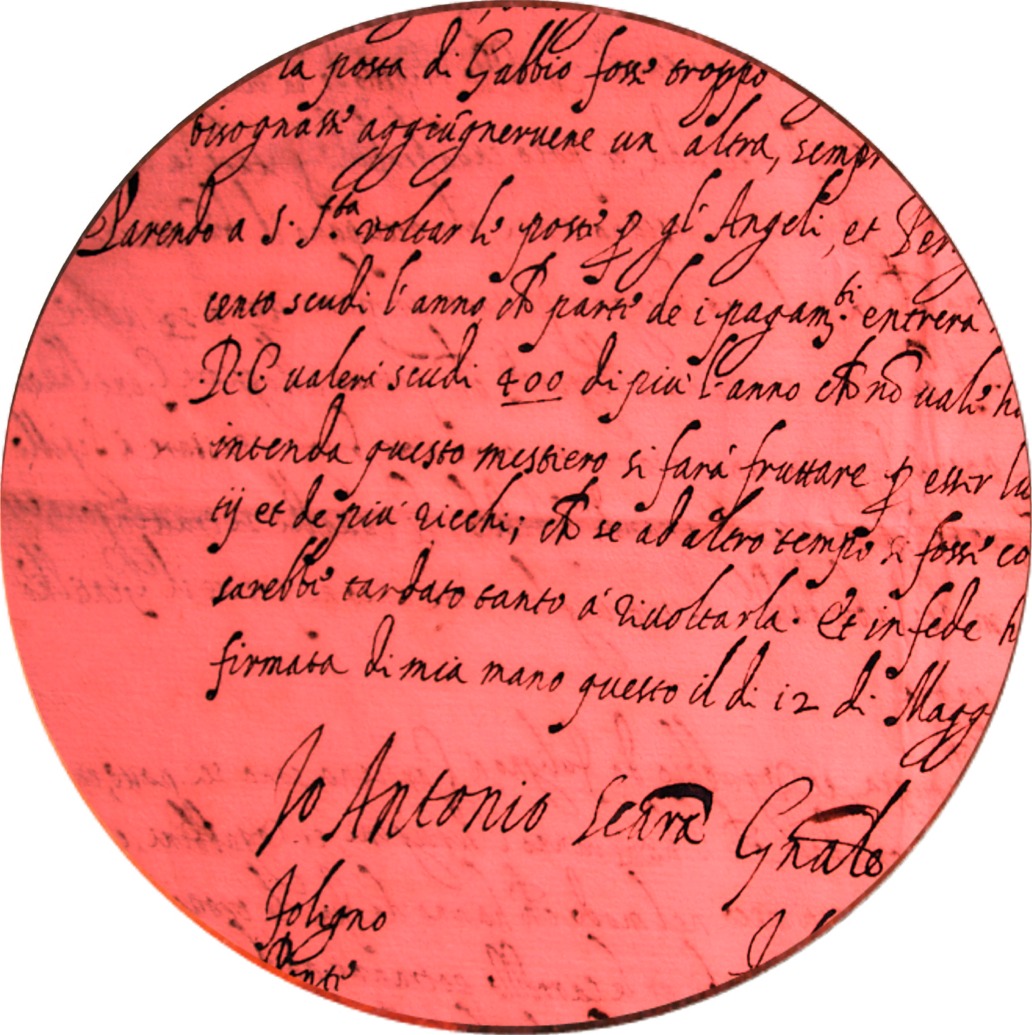 la posta di Gubbio fosse troppo
bisognasse aggiugnervene un altra, sempr
Parendo a S. S.ta voltar le poste p gl'Angeli, et Per
cento scudi l'anno che parte de i pagam.ti entrerà
R. C. valerà scudi 400 di più l'anno che nō vale h
intenda questo mestiero si farà fruttare p esser lu
tij et de più ricchi; che se ad altro tempo si fosse co
sarebbe tardato tanto à rivoltarla. Et in fede h
firmata di mia mano questo il di 12 di Magg
Io Antonio Gnāle
Foligno